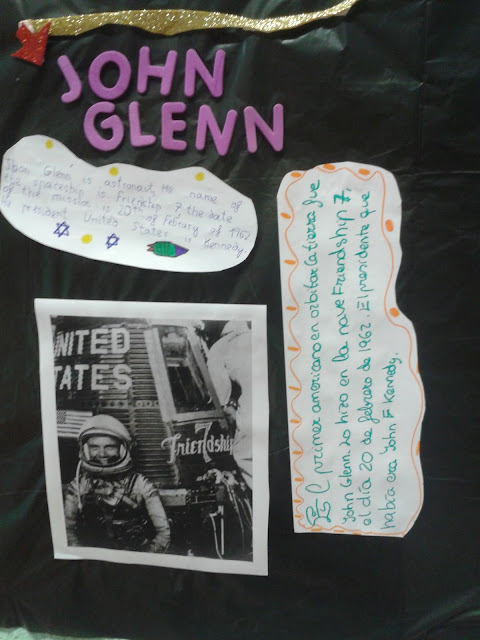 JOHN
GLENN
Glenn is astronaut. He name of
the spaceship is Friendship 7, the date
of the mission is 20th of February of 1962.
president United States is Kennedy.
NITED
TATES
Friend7ship
El primer americano en orbitar la tierra fue
John Glenn. Lo hizo en la nave Friendship 7,
el día 20 de febrero de 1962. El presidente que
había era John F Kennedy.